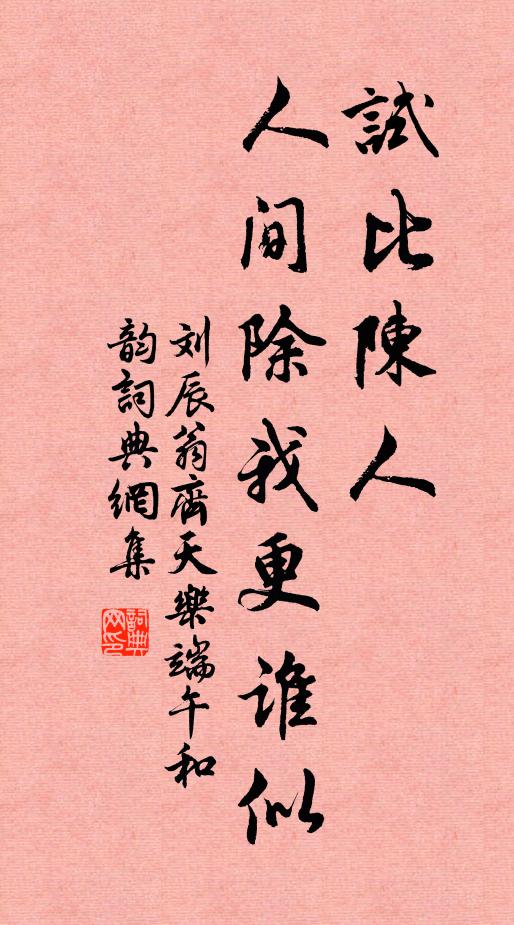 試比陳人
人间除我更谁似
刘辰翁齊天樂端午和
韵詞典網集
詞典
网印